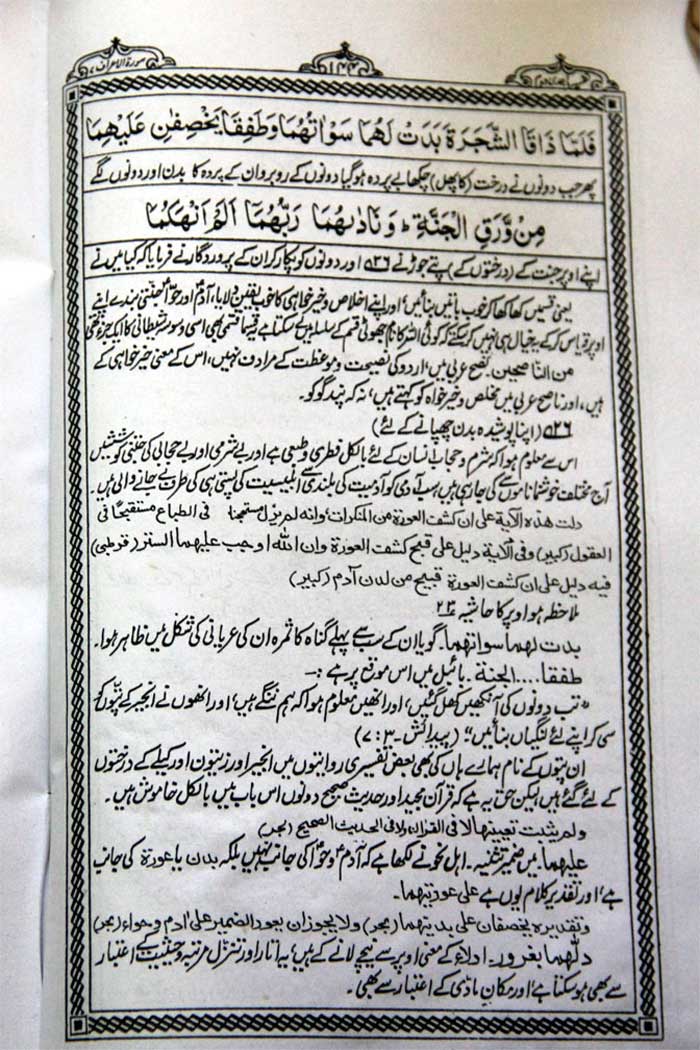 سورة الاعراف ،
۱۴۴
فَلَمَّا ذَاقَا الشَّجَرَةَ بَدَتْ لَهُمَا سَوْاٰتُهُمَا وَطَفِقَا يَخْصِفٰنِ عَلَيْهِمَا
پھر جب دونوں نے درخت (کا پھل) چکھا بے پردہ ہوگیا دونوں کے روبرو ان کے پردہ کا بدن اور دونوں لگے
مِنْ وَّرَقِ الْجَنَّةِ ؕ وَنَادٰىهُمَا رَبُّهُمَا اَلَمْ اَنْهَكُمَا
اپنے اوپر جنت کے (درختوں کے) پتے جوڑنے ۵۲۶ اور دونوں کو پکار کر ان کے پروردگار نے فرمایا کہ کیا میں نے
یعنی قسمیں کھا کھا کر خوب باتیں بنائیں، اور اپنے اخلاص وخیر خواہی کا خوب یقین دلایا، آدمؑ اور حوّاؑ جنتی بندے اپنے
اوپر قیاس کرکے یہ خیال ہی نہیں کرسکتے تھے کہ کوئی اللہ کا نام جھوٹی قسم کے سلسلہ میں لے سکتا ہے قیما قسمی بھی اسی وسوسۂ شیطانی کا ایک جزء تھی
من الناصحین۔ نصح عربی میں، اردو کی نصیحت وموعظت کے مرادف نہیں، اس کے معنی خیر خواہی کے
ہیں، اور ناصح عربی میں مخلص وخیر خواہ کو کہتے ہیں، نہ کہ پند گو کو۔
۵۲۶ (اپنا پوشیدہ بدن چھپانے کے لئے)
اس سے معلوم ہوا کہ شرم وحجاب انسان کے لئے بالکل فطری وطبعی ہے اور بے شرمی اور بے حجابی کی جتنی کوششیں
آج مختلف خوشنما ناموں سے کی جارہی ہیں سب آدمی کو آدمیت کی بلندی سے ابلیسیت کی پستی ہی کی طرف لے جانے والی ہیں۔
دلت هذه الآية على ان كشف العورة من المنكرات وانه لم يزل مستهجنا فى الطباع مستقبحا فى
العقول (کبیر) وفى الآية دليل على قبح كشف العورة وان الله اوجب عليهما الستر (قرطبی)
فيه دليل على ان كشف العورة قبيح من لدن آدم (کبیر)
ملاحظہ ہو اوپر کا حاشیہ
بدت لهما سواٰتهما۔ گویا ان کے سب سے پہلے گناہ کا ثمرہ ان کی عریانی کی شکل میں ظاہر ہوا۔
طفقا .... الجنة۔ بائبل میں اس موقع پر ہے :۔
”تب دونوں کی آنکھیں کھل گئیں، اور انھیں معلوم ہوا کہ ہم ننگے ہیں، اور انھوں نے انجیر کے پتّوں کو
سی کر اپنے لئے لنگیاں بنائیں“ (پیدائش۔ ۳: ۷)
ان پتوں کے نام ہمارے ہاں کی بھی بعض تفسیری روایتوں میں انجیر اور زیتون اور کیلے کے درختوں
کے لئے گئے ہیں لیکن حق یہ ہے کہ قرآن مجید اور حدیث صحیح دونوں اس باب میں بالکل خاموش ہیں۔
ولم يثبت تعيينها لا فى القرآن ولا فى الحديث الصحيح (بحر)
عليهما۔ میں ضمیر تثنیہ۔ اہل نحو نے لکھا ہے کہ آدمؑ وحوّاؑ کی جانب نہیں بلکہ بدن یا عورة کی جانب
ہے، اور تقدیر کلام یوں ہے على عورتيهما۔
وتقديره يخصفان على بدنيهما (بحر) ولا يجوز ان يعود الضمير على آدم وحواء (بحر)
دلّٰهما بغرور۔ ادلاء کے معنی اوپر سے نیچے لانے کے ہیں، یہ اتار اور تنزل مرتبہ وحیثیت کے اعتبار
سے بھی ہوسکتا ہے، اور مکان مادّی کے اعتبار سے بھی۔